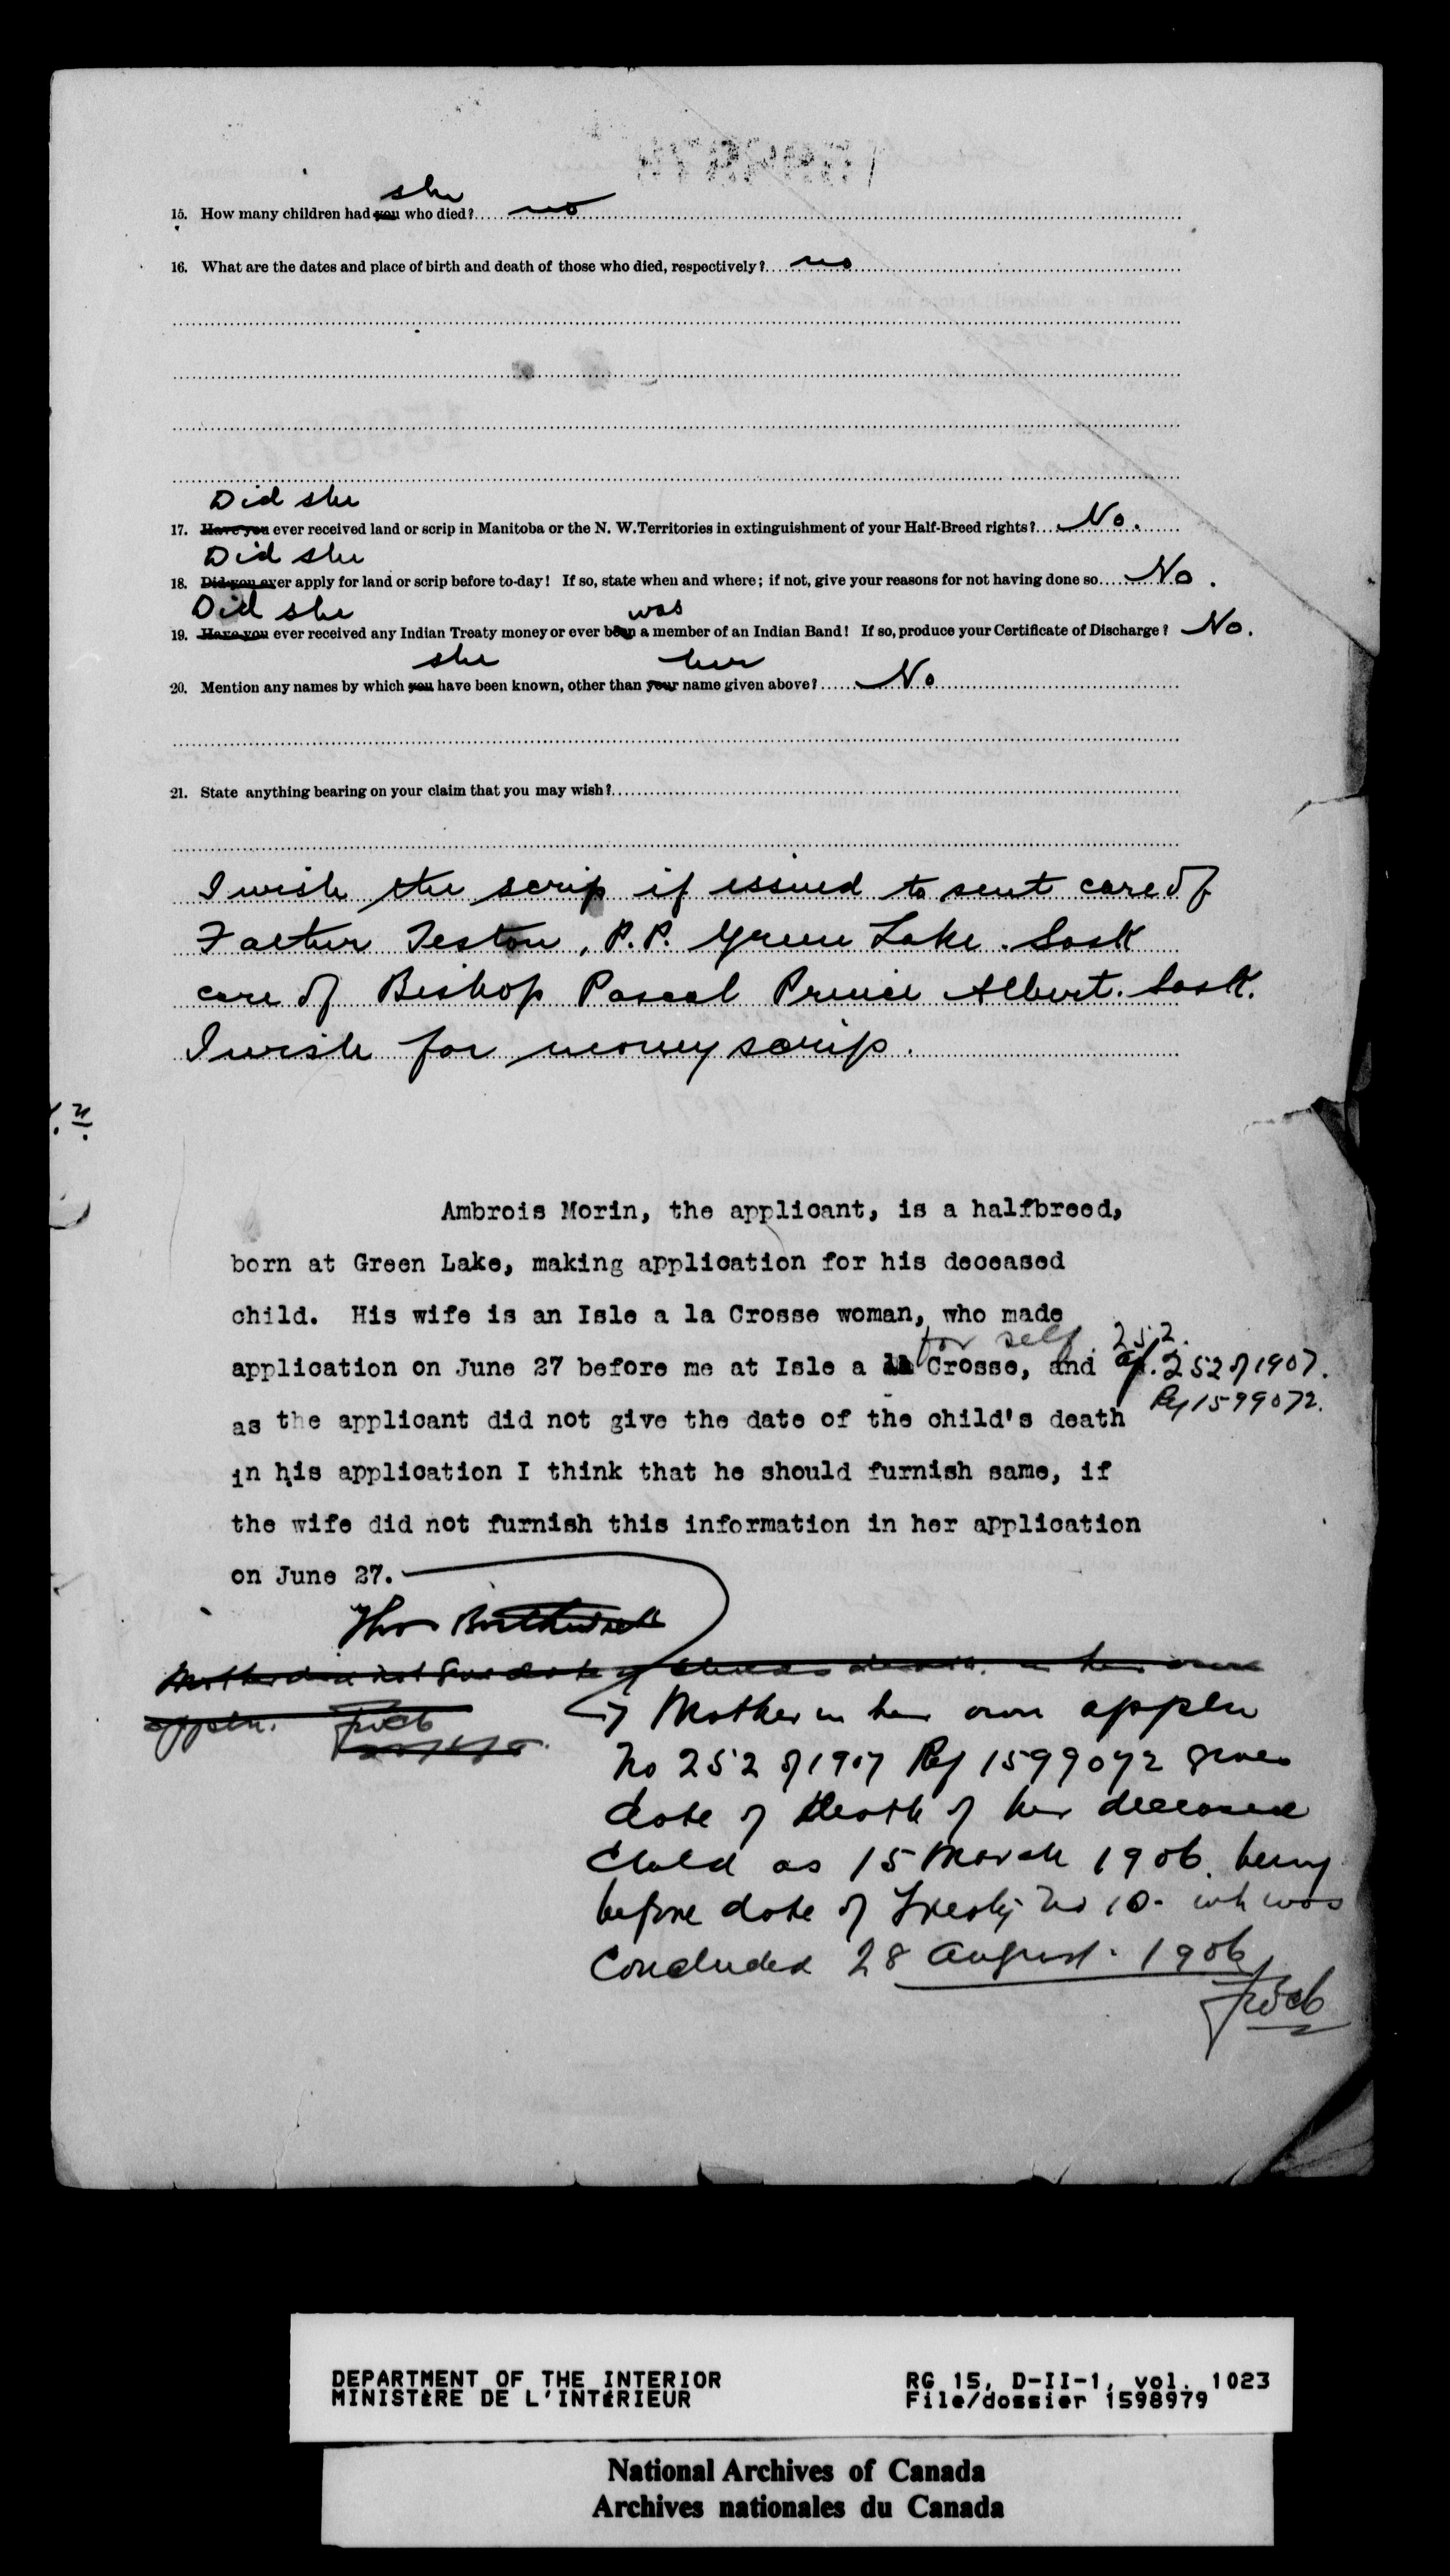 15. How many children had you she who died? no
16. What are the dates and place of birth and death of those who died, respectively? no
Did she
17. Have you ever received land or scrip in Manitoba or the N. W. Territories in extinguishment of your Half-Breed rights? No.
Did she
18. Did you ever apply for land or scrip before to-day! If so, state when and where; if not, give your reasons for not having done so No.
Did she was
19. Have you ever received any Indian Treaty money or ever been a member of an Indian Band! If so, produce your Certificate of Discharge? No.
she her
20. Mention any names by which you have been known, other than your name given above? No
21. State anything bearing on your claim that you may wish?
I wish the scrip if issued to sent care of
Father Teston, P.P. Green Lake. Sask
care of Bishop Pascal Prince Albert. Sask.
I wish for money scrip.
Ambrois Morin, the applicant, is a halfbreed,
born at Green Lake, making application for his deceased
child. His wife is an Isle a la Crosse woman, who made
for self. 252.
application on June 27 before me at Isle a la Crosse, and of. 252 of 1907.
Ref 1599072.
as the applicant did not give the date of the child's death
in his application I think that he should furnish same, if
the wife did not furnish this information in her application
on June 27.
Mother did not give date of child's death in her own
appln.
Mother in her own appln
No 252 of 1907 Ref 1599072 gives
date of death of her deceased
child as 15 March 1906. being
before date of Treaty No 10. wh was
concluded 28 August. 1906
DEPARTMENT OF THE INTERIOR
MINISTÈRE DE L'INTÉRIEUR
RG 15, D-II-1, vol. 1023
File/dossier 1598979
National Archives of Canada
Archives nationales du Canada